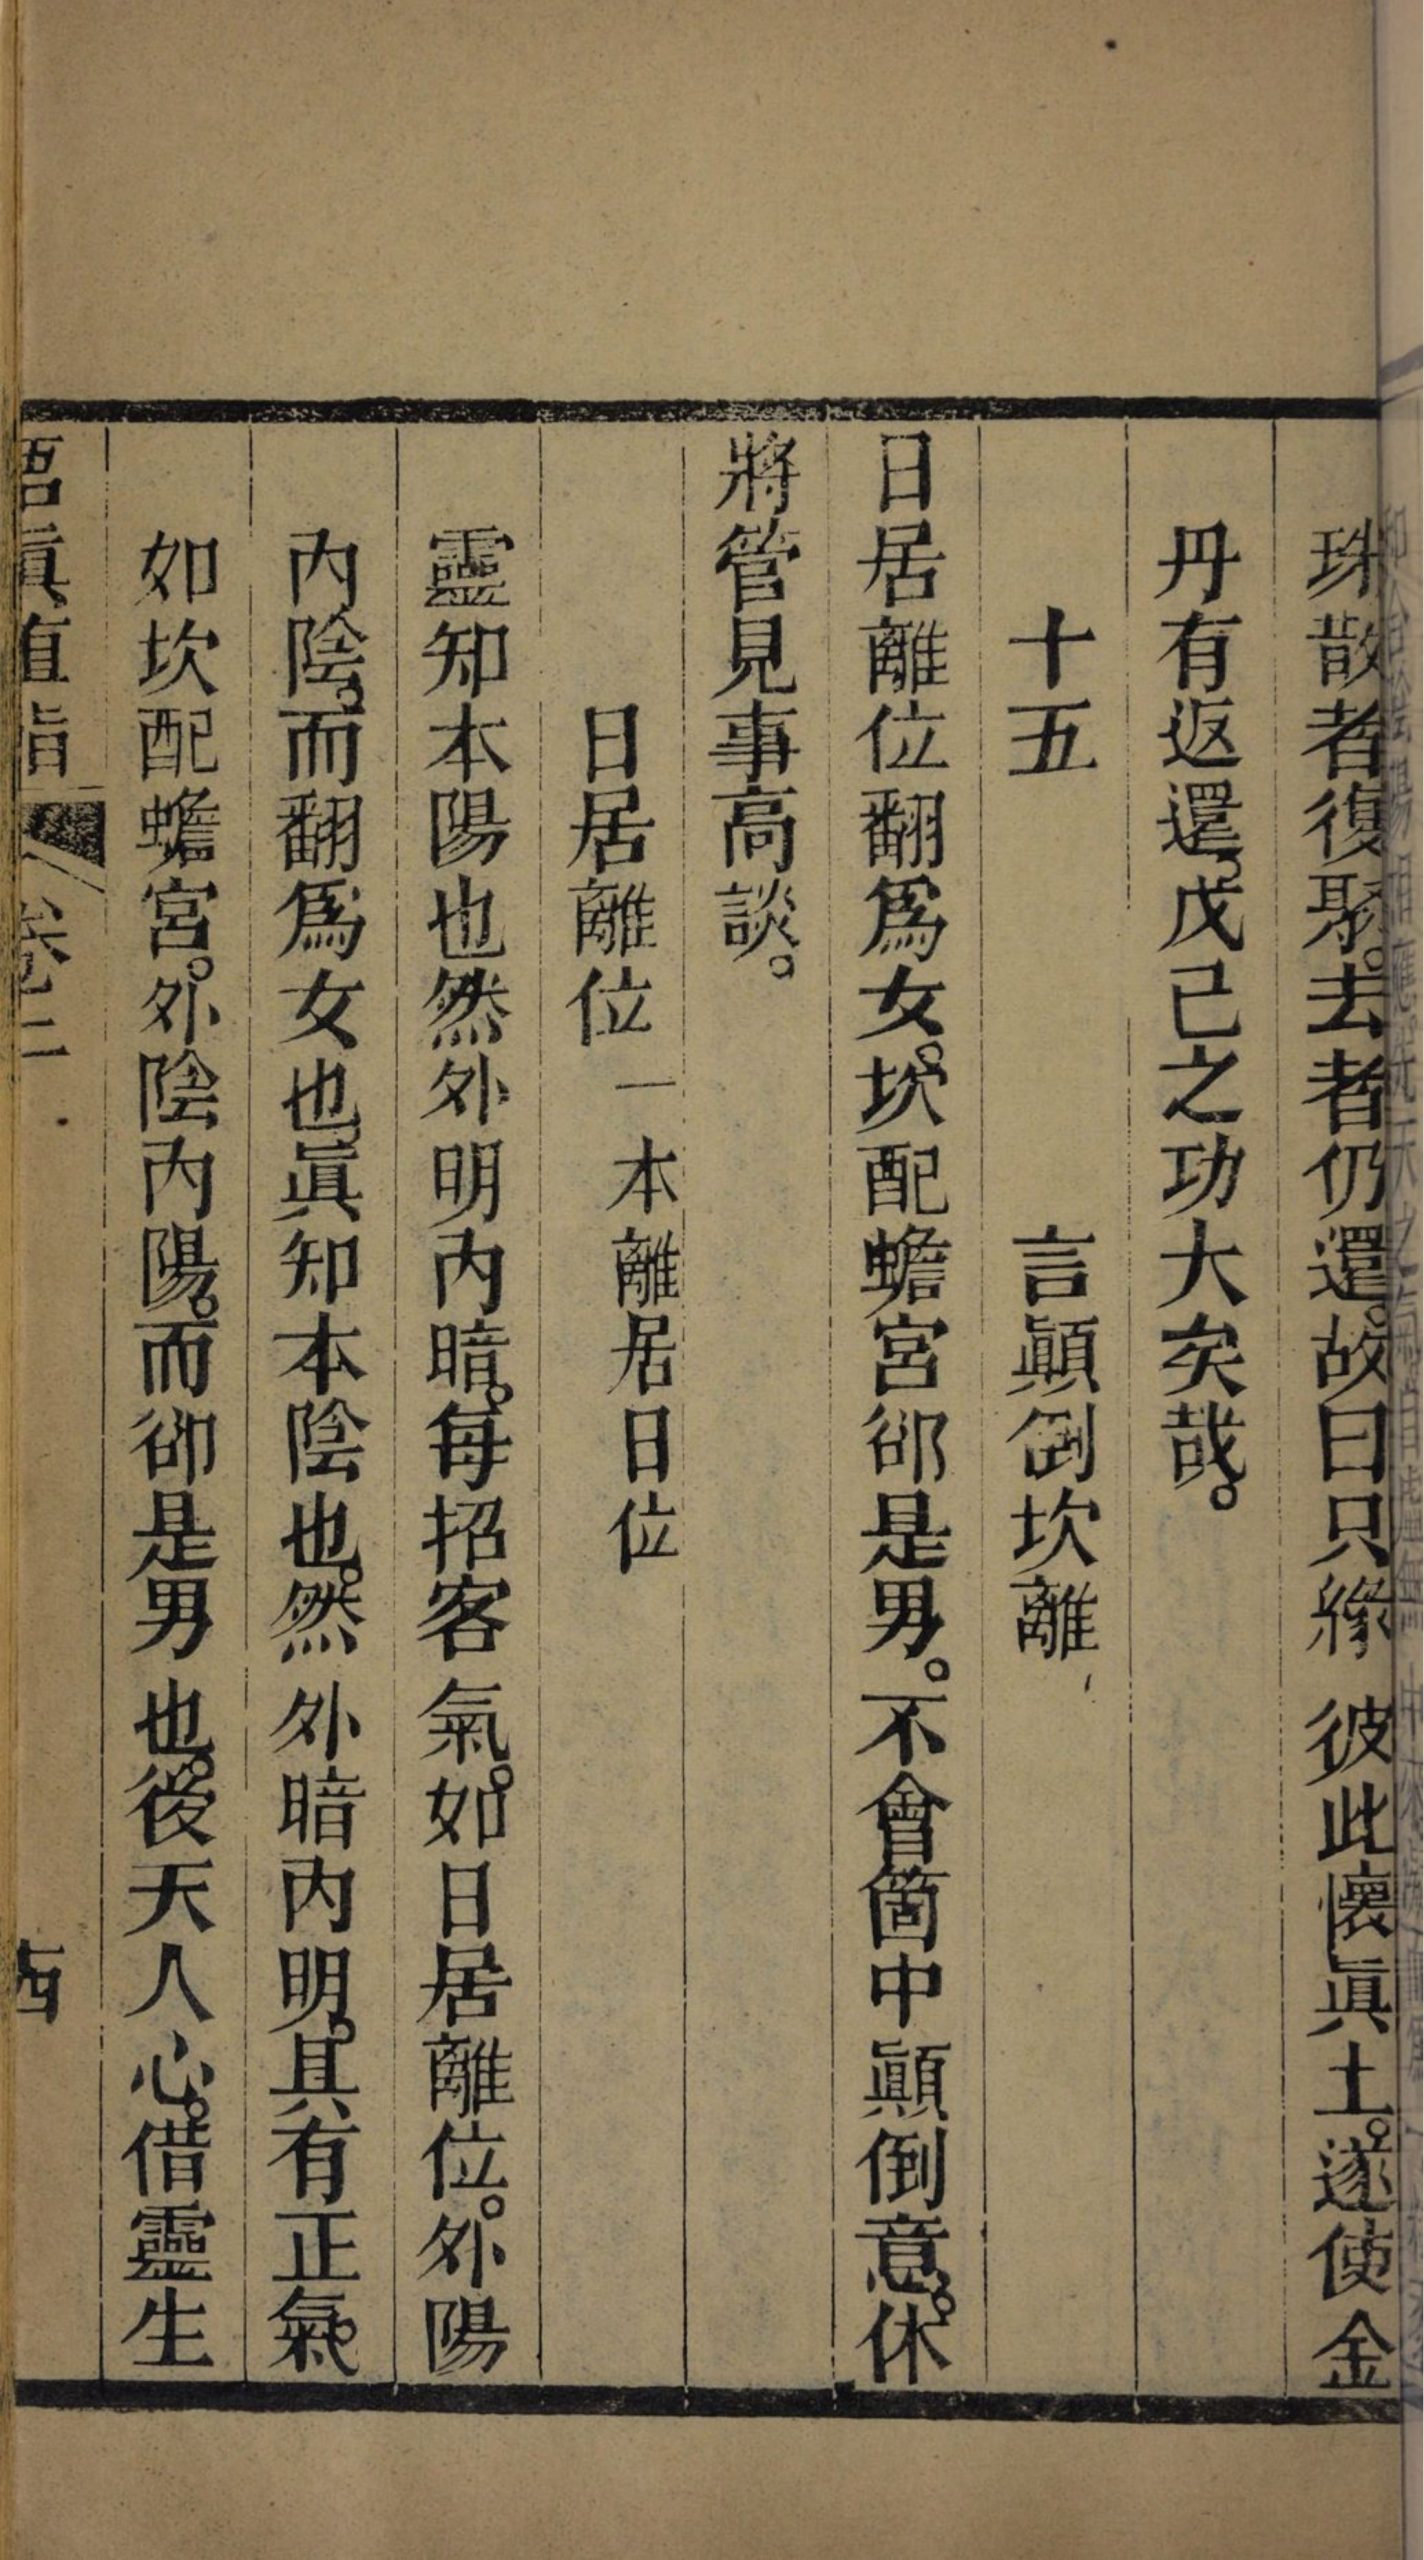 珠散者復聚。去者仍還。故曰只緣彼此懷眞土。遂使金
丹有返還。戊己之功大矣哉。
十五　言顚倒坎離
日居離位翻爲女。坎配蟾宮郤是男。不會箇中顚倒意。休
將管見事高談。
日居離位　一本離居日位
靈知本陽也然外明內暗。每招客氣。如日居離位。外陽
內陰。而翻爲女也。眞知本陰也。然外暗內明。具有正氣。
如坎配蟾宮。外陰內陽。而卻是男也。後天人心。借靈生
悟眞直指　卷二　西